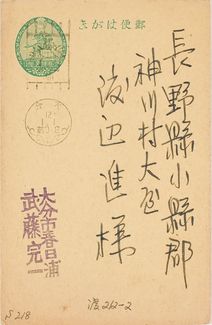 郵便はがき
長野縣小縣郡
神川村大屋
渡辺進様
大分市春日浦
武藤完一
渡262-2
S218